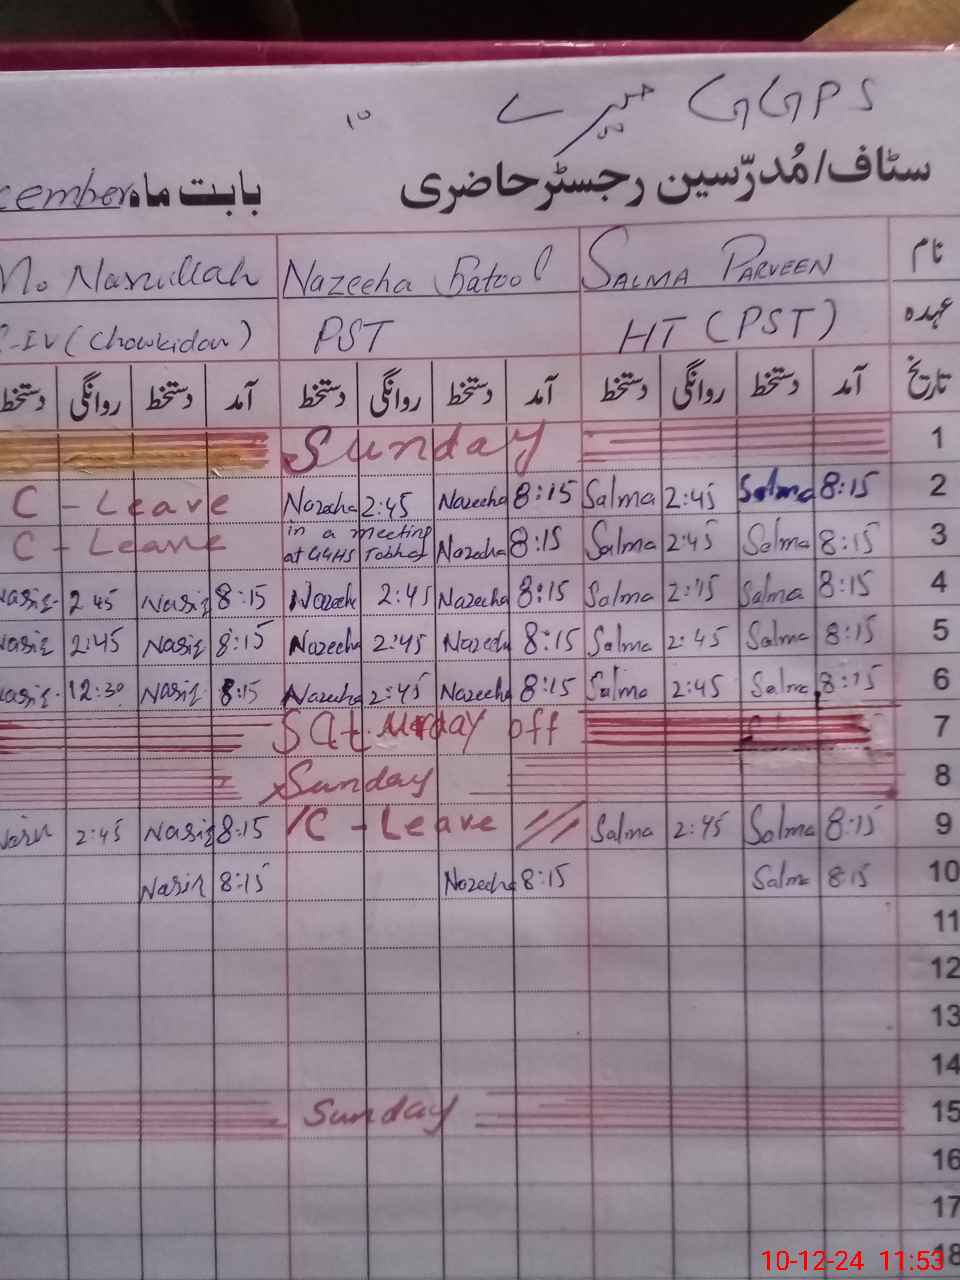 GGPS
سٹاف/مُدرّسین رجسٹر حاضری بابت ماہ cember
نام SALMA PARVEEN Nazeeha Batool Nasrullah
عہدہ HT (PST) PST -IV (Chowkidar)
تاریخ آمد دستخط روانگی دستخط آمد دستخط روانگی دستخط آمد دستخط روانگی دستخط
1 Sunday
2 8:15 Salma 2:45 Salma 8:15 Nazeeha 2:45 Nazeeha C - Leave
3 8:15 Salma 2:45 Salma 8:15 Nazeeha in a meeting at GGHS C - Leave
4 8:15 Salma 2:45 Salma 8:15 Nazeeha 2:45 Nazeeha 8:15 Nasir 2 45 Nasir
5 8:15 Salma 2:45 Salma 8:15 Nazeeha 2:45 Nazeeha 8:15 Nasir 2:45 Nasir
6 8:15 Salma 2:45 Salma 8:15 Nazeeha 2:45 Nazeeha 8:15 Nasir 12:30 Nasir
7 Saturday off
8 Sunday
9 8:15 Salma 2:45 Salma C - Leave 8:15 Nasir 2:45 Nasir
10 8:15 Salma 8:15 Nazeeha 8:15 Nasir
11
12
13
14
15 Sunday
16
17
18
10-12-24 11:53